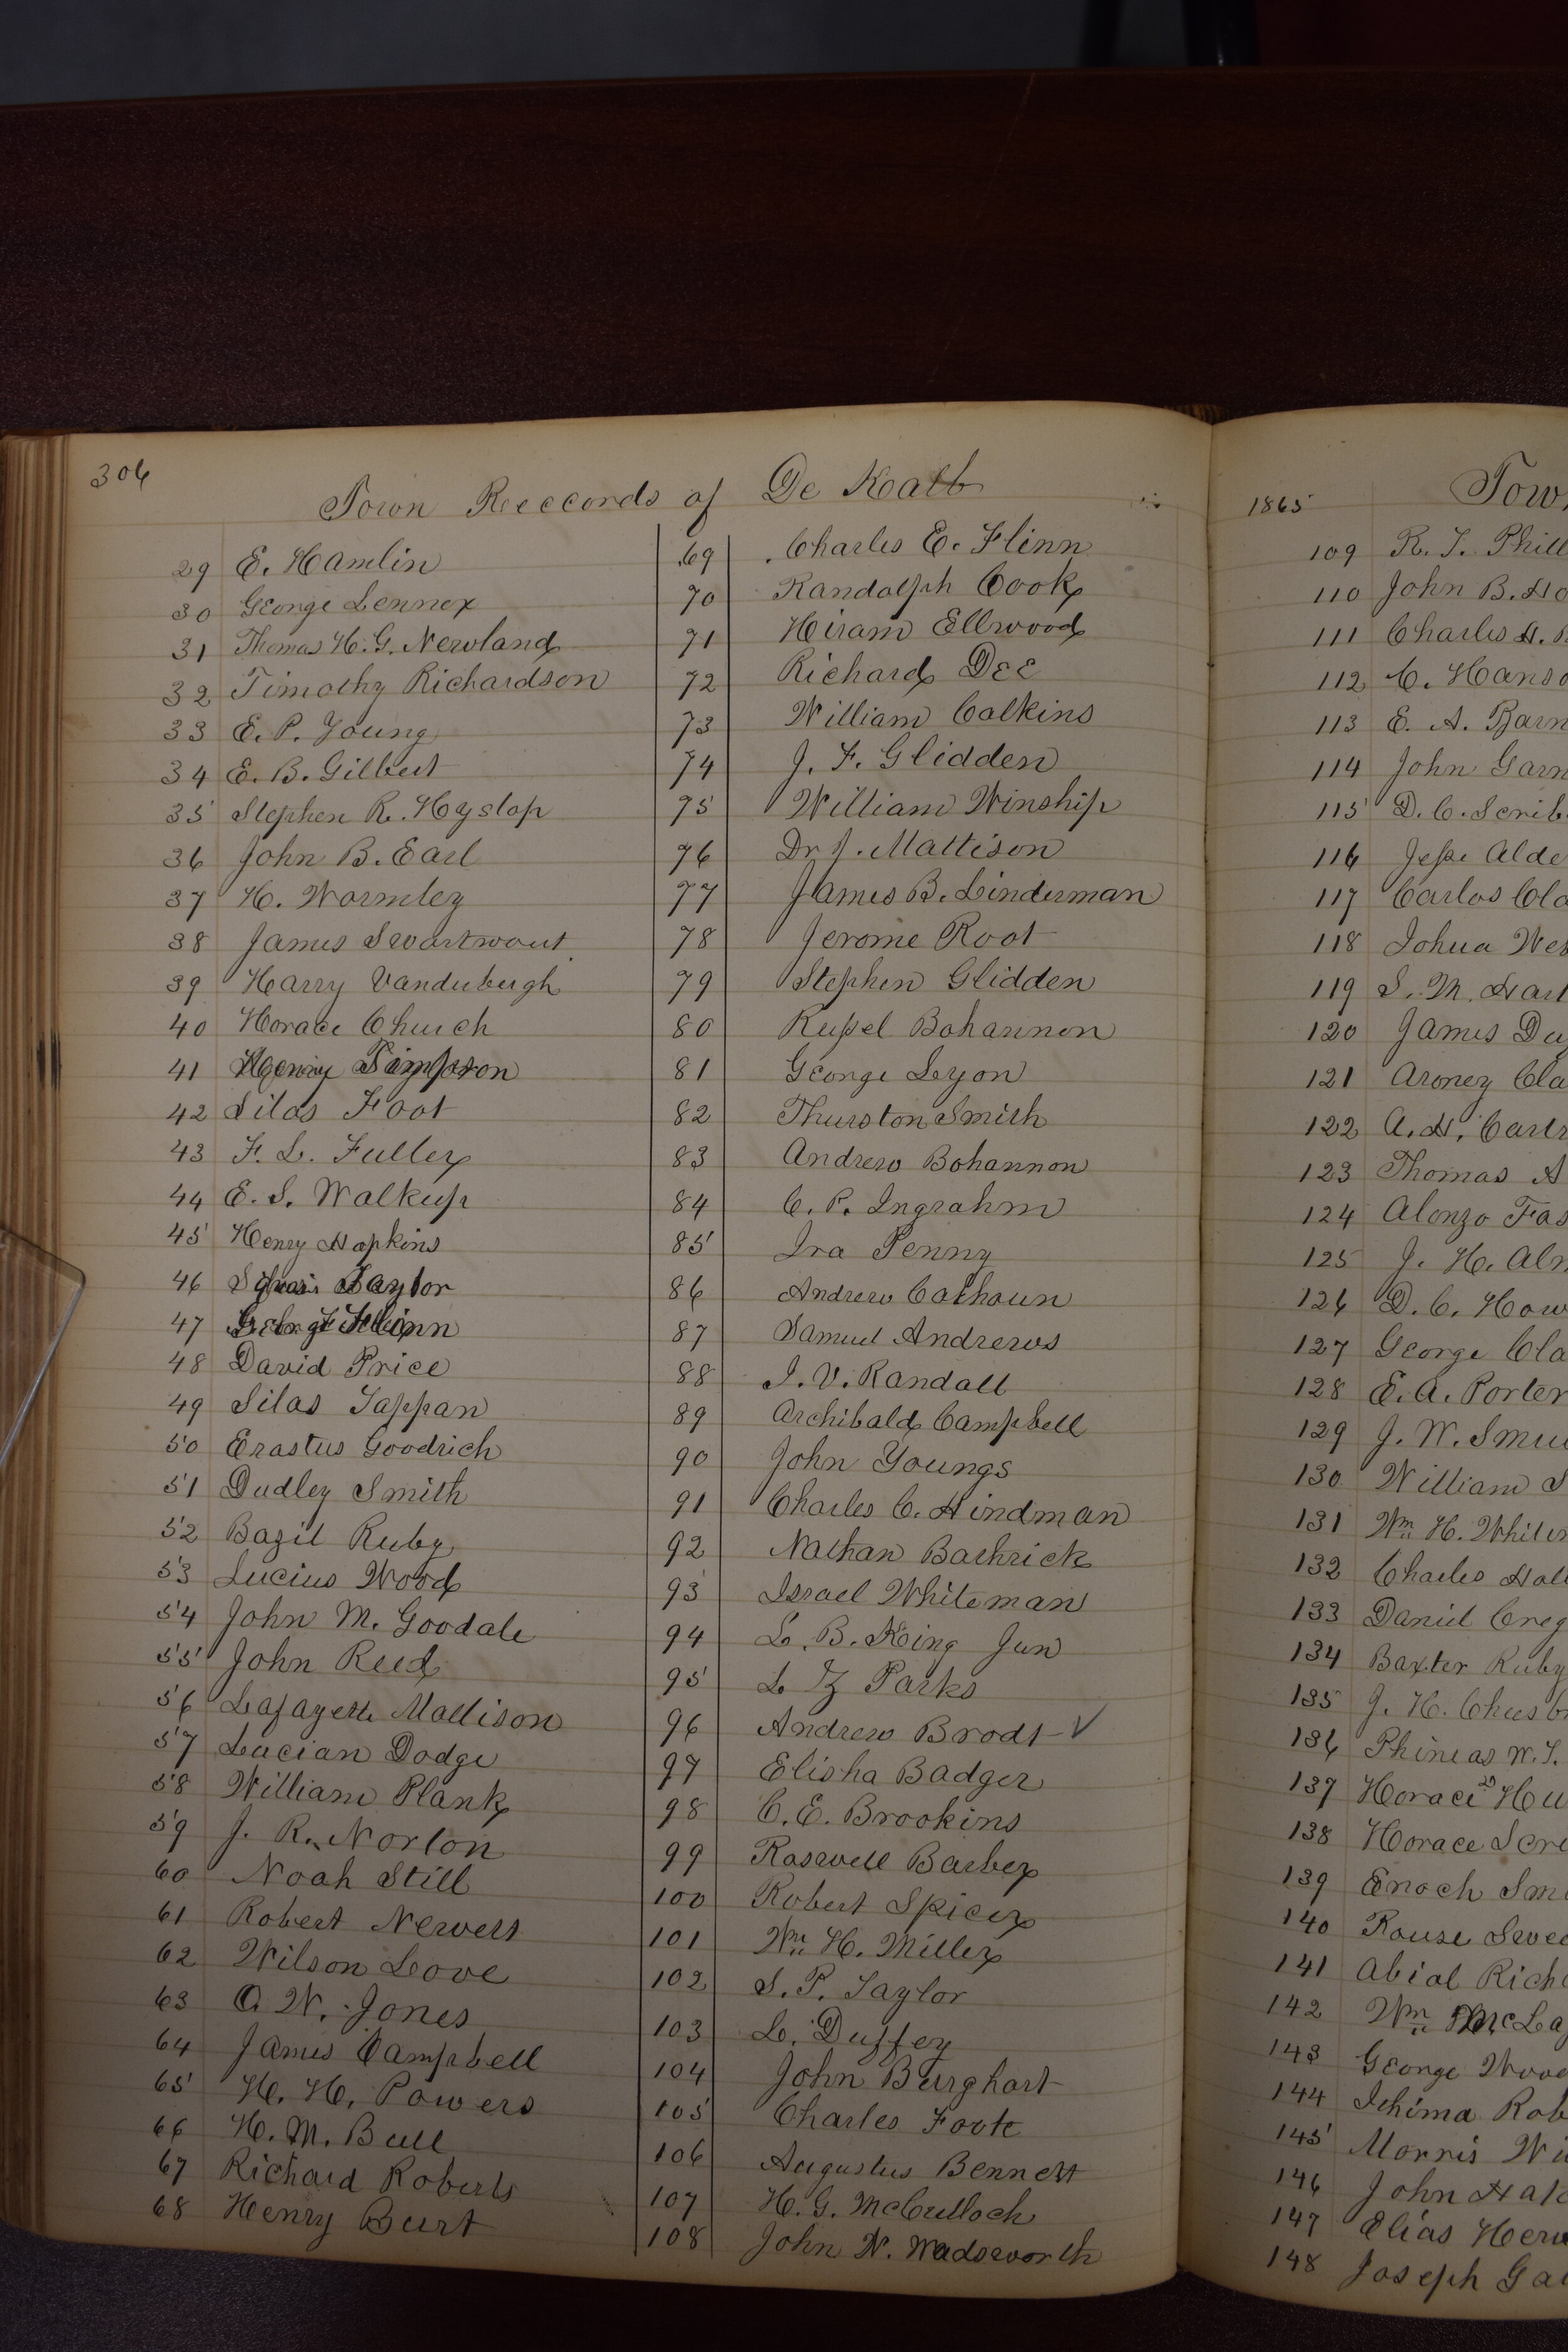 306
Town Reccords of De Kalb
29 E. Hamlin
30 George Lennox
31 Thomas H. G. Newland
32 Timothy Richardson
33 E. P. Young
34 E. B. Gilbert
35 Stephen R. Hyslop
36 John B. Earl
37 H. Wormley
38 James Swartwout
39 Harry Vanduburgh
40 Horace Church
41 Henry Simpson
42 Silas Foot
43 F. L. Fuller
44 E. S. Walkup
45 Henry Hopkins
46 Taylor
47 George Flinn
48 David Price
49 Silas Tappan
50 Erastus Goodrich
51 Dudley Smith
52 Bazil Ruby
53 Lucius Wood
54 John M. Goodale
55 John Reed
56 Lafayette Mattison
57 Lucian Dodge
58 William Plank
59 J. R. Norton
60 Noah Still
61 Robert Newett
62 Wilson Love
63 O W. Jones
64 James Campbell
65 H. H. Powers
66 H. M. Bull
67 Richard Roberts
68 Henry Burt
69 Charles E. Flinn
70 Randolph Cook
71 Hiram Ellwood
72 Richard Dee
73 William Calkins
74 J. F. Glidden
75 William Winship
76 Dr J. Mattison
77 James B. Linderman
78 Jerome Root
79 Stephen Glidden
80 Russel Bohannon
81 George Lyon
82 Thurston Smith
83 Andrew Bohannon
84 C. P. Ingrahm
85 Ira Penny
86 Andrew Calhoun
87 Samuel Andrews
88 I. V. Randall
89 Archibald Campbell
90 John Youngs
91 Charles C. Hindman
92 Nathan Bathrick
93 Israel Whiteman
94 L. B. King Jun
95 L Parks
96 Andrew Brodt ✓
97 Elisha Badger
98 C. E. Brookins
99 Roswell Barber
100 Robert Spicer
101 Wm H. Miller
102 S. P. Taylor
103 L. Duffey
104 John Burghart
105 Charles Foote
106 Augustus Bennett
107 H. G. McCulloch
108 John N. Wadsworth
1865 Tow
109 R. T. Phill
110 John B. Ho
111 Charles H.
112 C. Hanso
113 E. A. Barn
114 John Garn
115 D. C. Scrib
116 Jesse Alde
117 Carlos Cla
118 Johua Wes
119 S. M. Hart
120 James Du
121 Aroney Cla
122 A. H. Cart
123 Thomas A
124 Alonzo Fas
125 J. H. Alm
126 D. C. How
127 George Cla
128 E. A. Porter
129 J. W. Smu
130 William S
131 Wm H. Whit
132 Charles Hall
133 Daniel Creg
134 Baxter Ruby
135 J. H. Ch
136 Phineas W. T.
137 Horace Hu
138 Horace Scr
139 Enoch Smi
140 Rouse Swe
141 Abial Rich
142 Wm McLa
143 George Wood
144 Ichima Rob
145 Morris Wi
146 John Hal
147 Elias Her
148 Joseph Ga